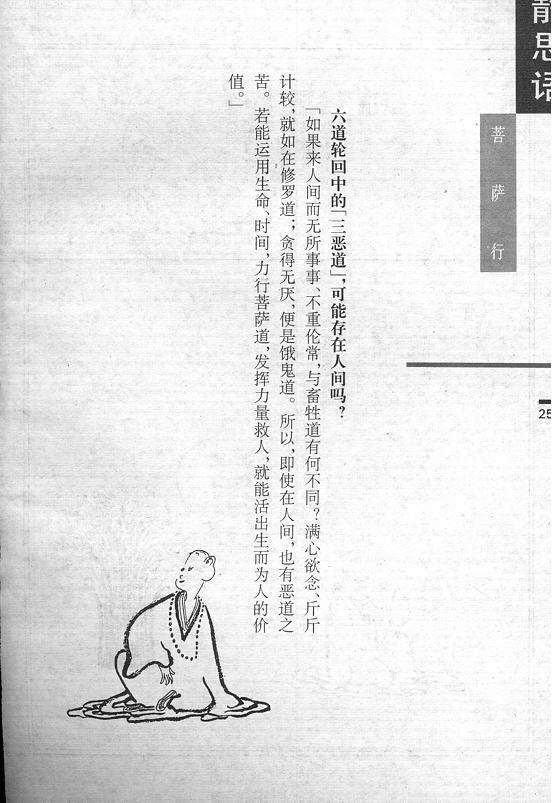 静思语
菩萨行
25
六道轮回中的「三恶道」，可能存在人间吗？
「如果来人间而无所事事、不重伦常，与畜牲道有何不同？满心欲念、斤斤
计较，就如在修罗道；贪得无厌，便是饿鬼道。所以，即使在人间，也有恶道之
苦。若能运用生命、时间，力行菩萨道，发挥力量救人，就能活出生而为人的价
值。」